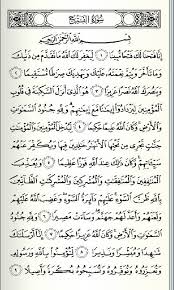 سُورَةُ الفَتْحِ
بِسْمِ اللَّهِ الرَّحْمَٰنِ الرَّحِيمِ
إِنَّا فَتَحْنَا لَكَ فَتْحًا مُّبِينًا ١ لِّيَغْفِرَ لَكَ ٱللَّهُ مَا تَقَدَّمَ مِن ذَنۢبِكَ
وَمَا تَأَخَّرَ وَيُتِمَّ نِعْمَتَهُۥ عَلَيْكَ وَيَهْدِيَكَ صِرَٰطًا مُّسْتَقِيمًا ٢
وَيَنصُرَكَ ٱللَّهُ نَصْرًا عَزِيزًا ٣ هُوَ ٱلَّذِىٓ أَنزَلَ ٱلسَّكِينَةَ فِى قُلُوبِ
ٱلْمُؤْمِنِينَ لِيَزْدَادُوٓا۟ إِيمَٰنًا مَّعَ إِيمَٰنِهِمْ وَلِلَّهِ جُنُودُ ٱلسَّمَٰوَٰتِ
وَٱلْأَرْضِ وَكَانَ ٱللَّهُ عَلِيمًا حَكِيمًا ٤ لِّيُدْخِلَ ٱلْمُؤْمِنِينَ وَٱلْمُؤْمِنَٰتِ
جَنَّٰتٍ تَجْرِى مِن تَحْتِهَا ٱلْأَنْهَٰرُ خَٰلِدِينَ فِيهَا وَيُكَفِّرَ عَنْهُمْ
سَيِّـَٔاتِهِمْ وَكَانَ ذَٰلِكَ عِندَ ٱللَّهِ فَوْزًا عَظِيمًا ٥ وَيُعَذِّبَ
ٱلْمُنَٰفِقِينَ وَٱلْمُنَٰفِقَٰتِ وَٱلْمُشْرِكِينَ وَٱلْمُشْرِكَٰتِ ٱلظَّآنِّينَ
بِٱللَّهِ ظَنَّ ٱلسَّوْءِ عَلَيْهِمْ دَآئِرَةُ ٱلسَّوْءِ وَغَضِبَ ٱللَّهُ عَلَيْهِمْ
وَلَعَنَهُمْ وَأَعَدَّ لَهُمْ جَهَنَّمَ وَسَآءَتْ مَصِيرًا ٦ وَلِلَّهِ جُنُودُ
ٱلسَّمَٰوَٰتِ وَٱلْأَرْضِ وَكَانَ ٱللَّهُ عَزِيزًا حَكِيمًا ٧ إِنَّآ أَرْسَلْنَٰكَ
شَٰهِدًا وَمُبَشِّرًا وَنَذِيرًا ٨ لِّتُؤْمِنُوا۟ بِٱللَّهِ وَرَسُولِهِۦ
وَتُعَزِّرُوهُ وَتُوَقِّرُوهُ وَتُسَبِّحُوهُ بُكْرَةً وَأَصِيلًا ٩